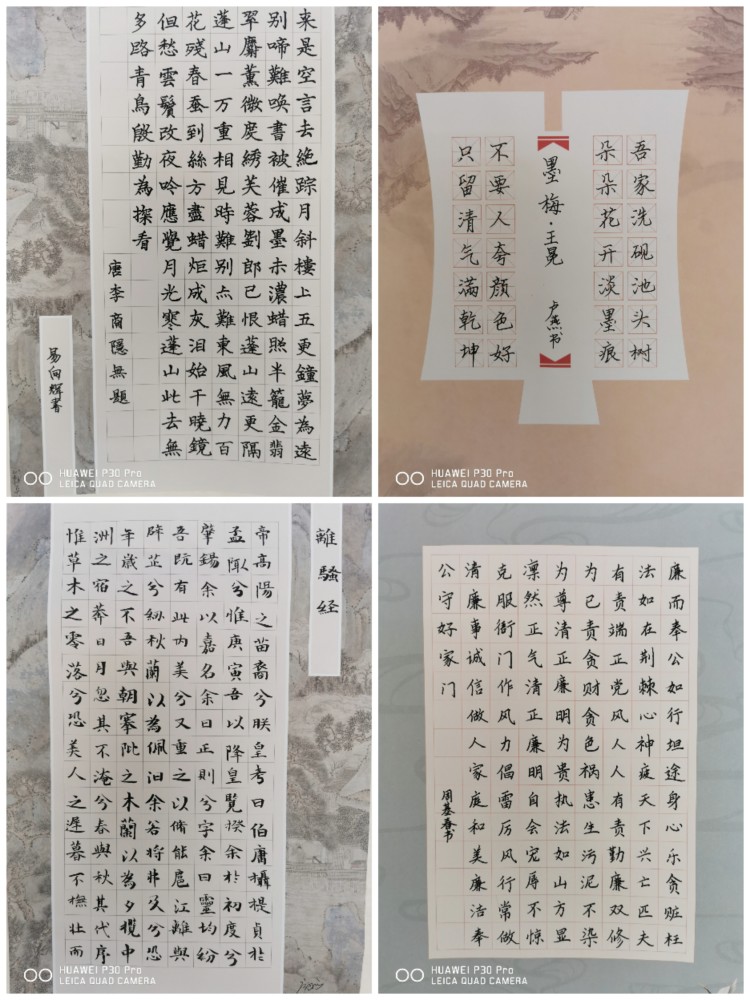 来是空言去絶踪月斜樓上五更鐘夢為遠
别啼難唤書被催成墨未濃蜡照半籠金翡
翠麝薰微度綉芙蓉劉郎已恨蓬山遠更隔
蓬山一万重相見時難别亦難東風無力百
花殘春蚕到絲方盡蜡炬成灰泪始干曉鏡
但愁雲鬢改夜吟應覺月光寒蓬山此去無
多路青鳥殷勤為探看
唐李商隱無題
易向輝書
HUAWEI P30 Pro
LEICA QUAD CAMERA
吾家洗砚池头树
朵朵花开淡墨痕
墨梅·王冕
书
不要人夸颜色好
只留清气满乾坤
HUAWEI P30 Pro
LEICA QUAD CAMERA
離騷經
帝高陽之苗裔兮朕皇考曰伯庸攝提貞於
孟陬兮惟庚寅吾以降皇覽揆余於初度兮
肇錫余以嘉名余曰正則兮字余曰靈均紛
吾既有此内美兮又重之以脩能扈江離與
辟芷兮紉秋蘭以為佩汩余若將弗及兮恐
年歲之不吾與朝搴阰之木蘭以為夕攬中
洲之宿莽日月忽其不淹兮春與秋其代序
惟草木之零落兮恐美人之遲暮不撫壯而
HUAWEI P30 Pro
LEICA QUAD CAMERA
廉而奉公如行坦途身心乐贪赃枉
法如在荆棘心神疲天下兴亡匹夫
有责端正党风人人有责勤廉双修
为己责贪财贪色祸患生污泥不染
为尊清正廉明为贵执法如山方显
凛然正气清正廉明自会宠辱不惊
克服衙门作风力倡雷厉风行常做
清廉事诚信做人家庭和美廉洁奉
公守好家门
周基春书
HUAWEI P30 Pro
LEICA QUAD CAMERA